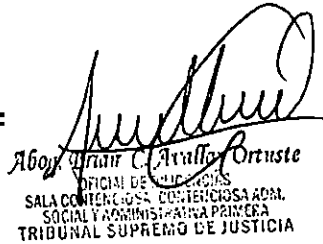 :
Abog. Brian C. Avallo Ortuste
OFICIAL DE DILIGENCIAS
SALA CONTENCIOSA, CONTENCIOSA ADM.
SOCIAL Y ADMINISTRATIVA PRIMERA
TRIBUNAL SUPREMO DE JUSTICIA